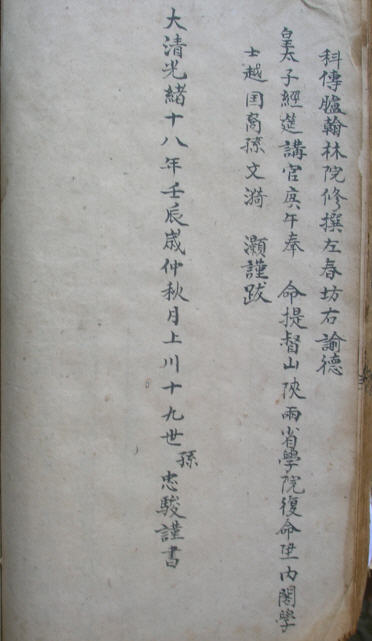 科傳臚翰林院修撰左春坊右諭德
皇太子經筵講官庚午奉 命提督山陝兩省學院復命陞內閣學
士越国裔孫文漪 灝謹跋
大清光緒十八年壬辰歲仲秋月上川十九世孫忠駿謹書